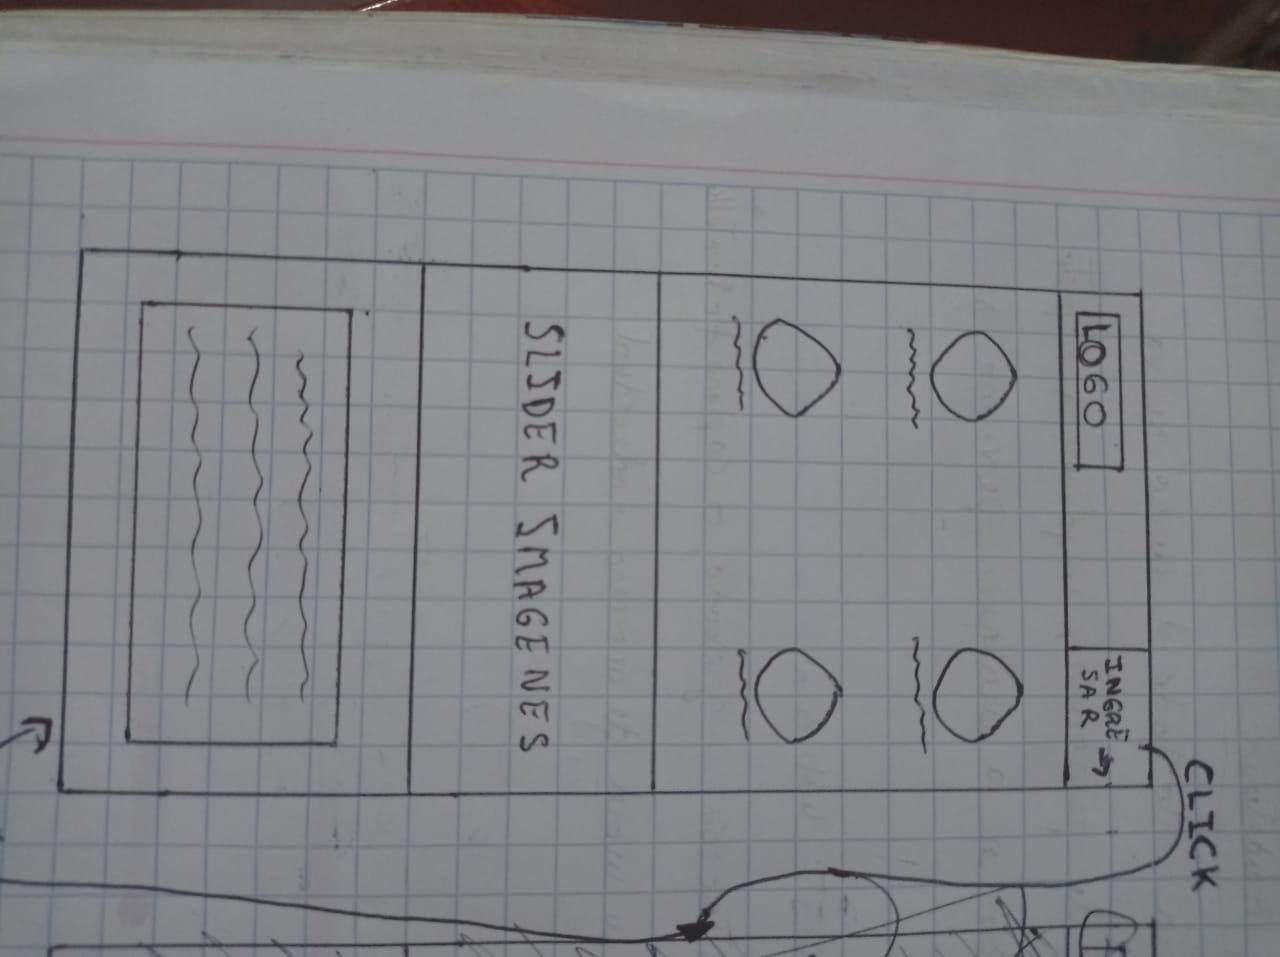 CLICK
LOGO
INGRE
SAR
SLIDER IMAGENES